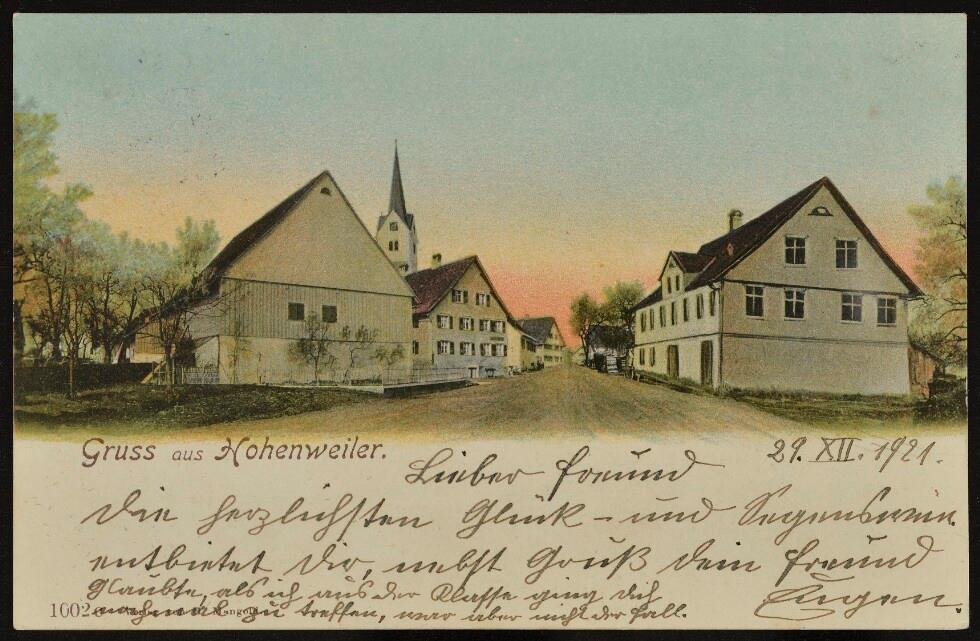 Gruss aus Hohenweiler.
29. XII. 1921.
Lieber Freund
Die herzlichsten Glück- und Segenswün.
entbietet Dir, nebst Gruß dein Freund
Eugen.
Glaubte, als ich aus der Klasse ging dich
noch einmal zu treffen, war aber nicht der Fall.
1002